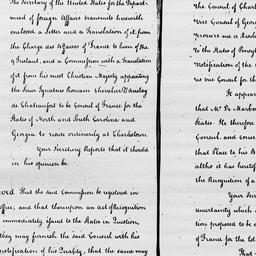 The Secretary of the United States for the Depart-
ment of foreign Affairs transmits herewith
enclosed a letter and a Translation of it, from
the Charge des Affaires of France to him of the
9 Instant, and a Commission with a Translation
of it from his most Christian Majesty appointing
the Jean Ignatius Romain Chevalier D'
de Chateaufort to be Consul of France for the
States of North and South Carolina and
Georgia to reside ordinarily at Charlestown
Your Secretary Reports that it should
in his opinion be
That the said Commission be registered in
office, and that thereupon an Act of Recognition
immediately issued to the States in Question,
they may furnish the said Consul with his
notification of his Quality, that the same may
the Consul of Charl
Vice Consul of Geor
procure me a Read
to the State of Pensyl
Notification of the
as vice Consul for th
It appear
that Mr. De Marbo
States. He therefore
Consul, and conse
that Place to his B
altho it has hereto
the Recognition of a
Your Secr
uncertainty which
tion proposed to be
of France for the Ed
That